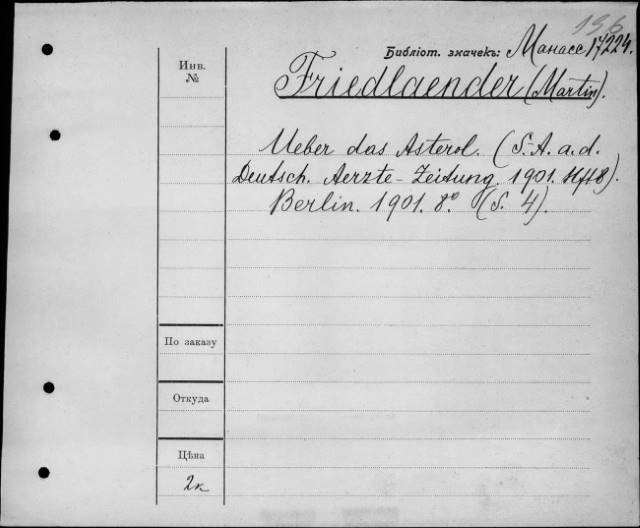 196
Библіот. значекъ: Манасс 17224.
Инв. №
Friedlaender (Martin).
Ueber das Asterol. (S.-A. a. d.
Deutsch. Aerzte-Zeitung. 1901. Hft 8).
Berlin. 1901. 8º (S. 4).
По заказу
Откуда
Цѣна
2к